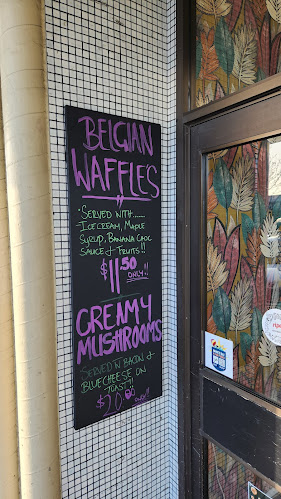 BELGIAN
WAFFLES
"
• SERVED WITH.....
ICE CREAM, MAPLE
SYRUP, BANANA CHOC
SAUCE & FRUITS!!
$11.50
ONLY!!
CREAMY
MUSHROOMS
SERVED N BACON &
BLUE CHEESE ON
TOAST!!
$20.00
ONLY!!